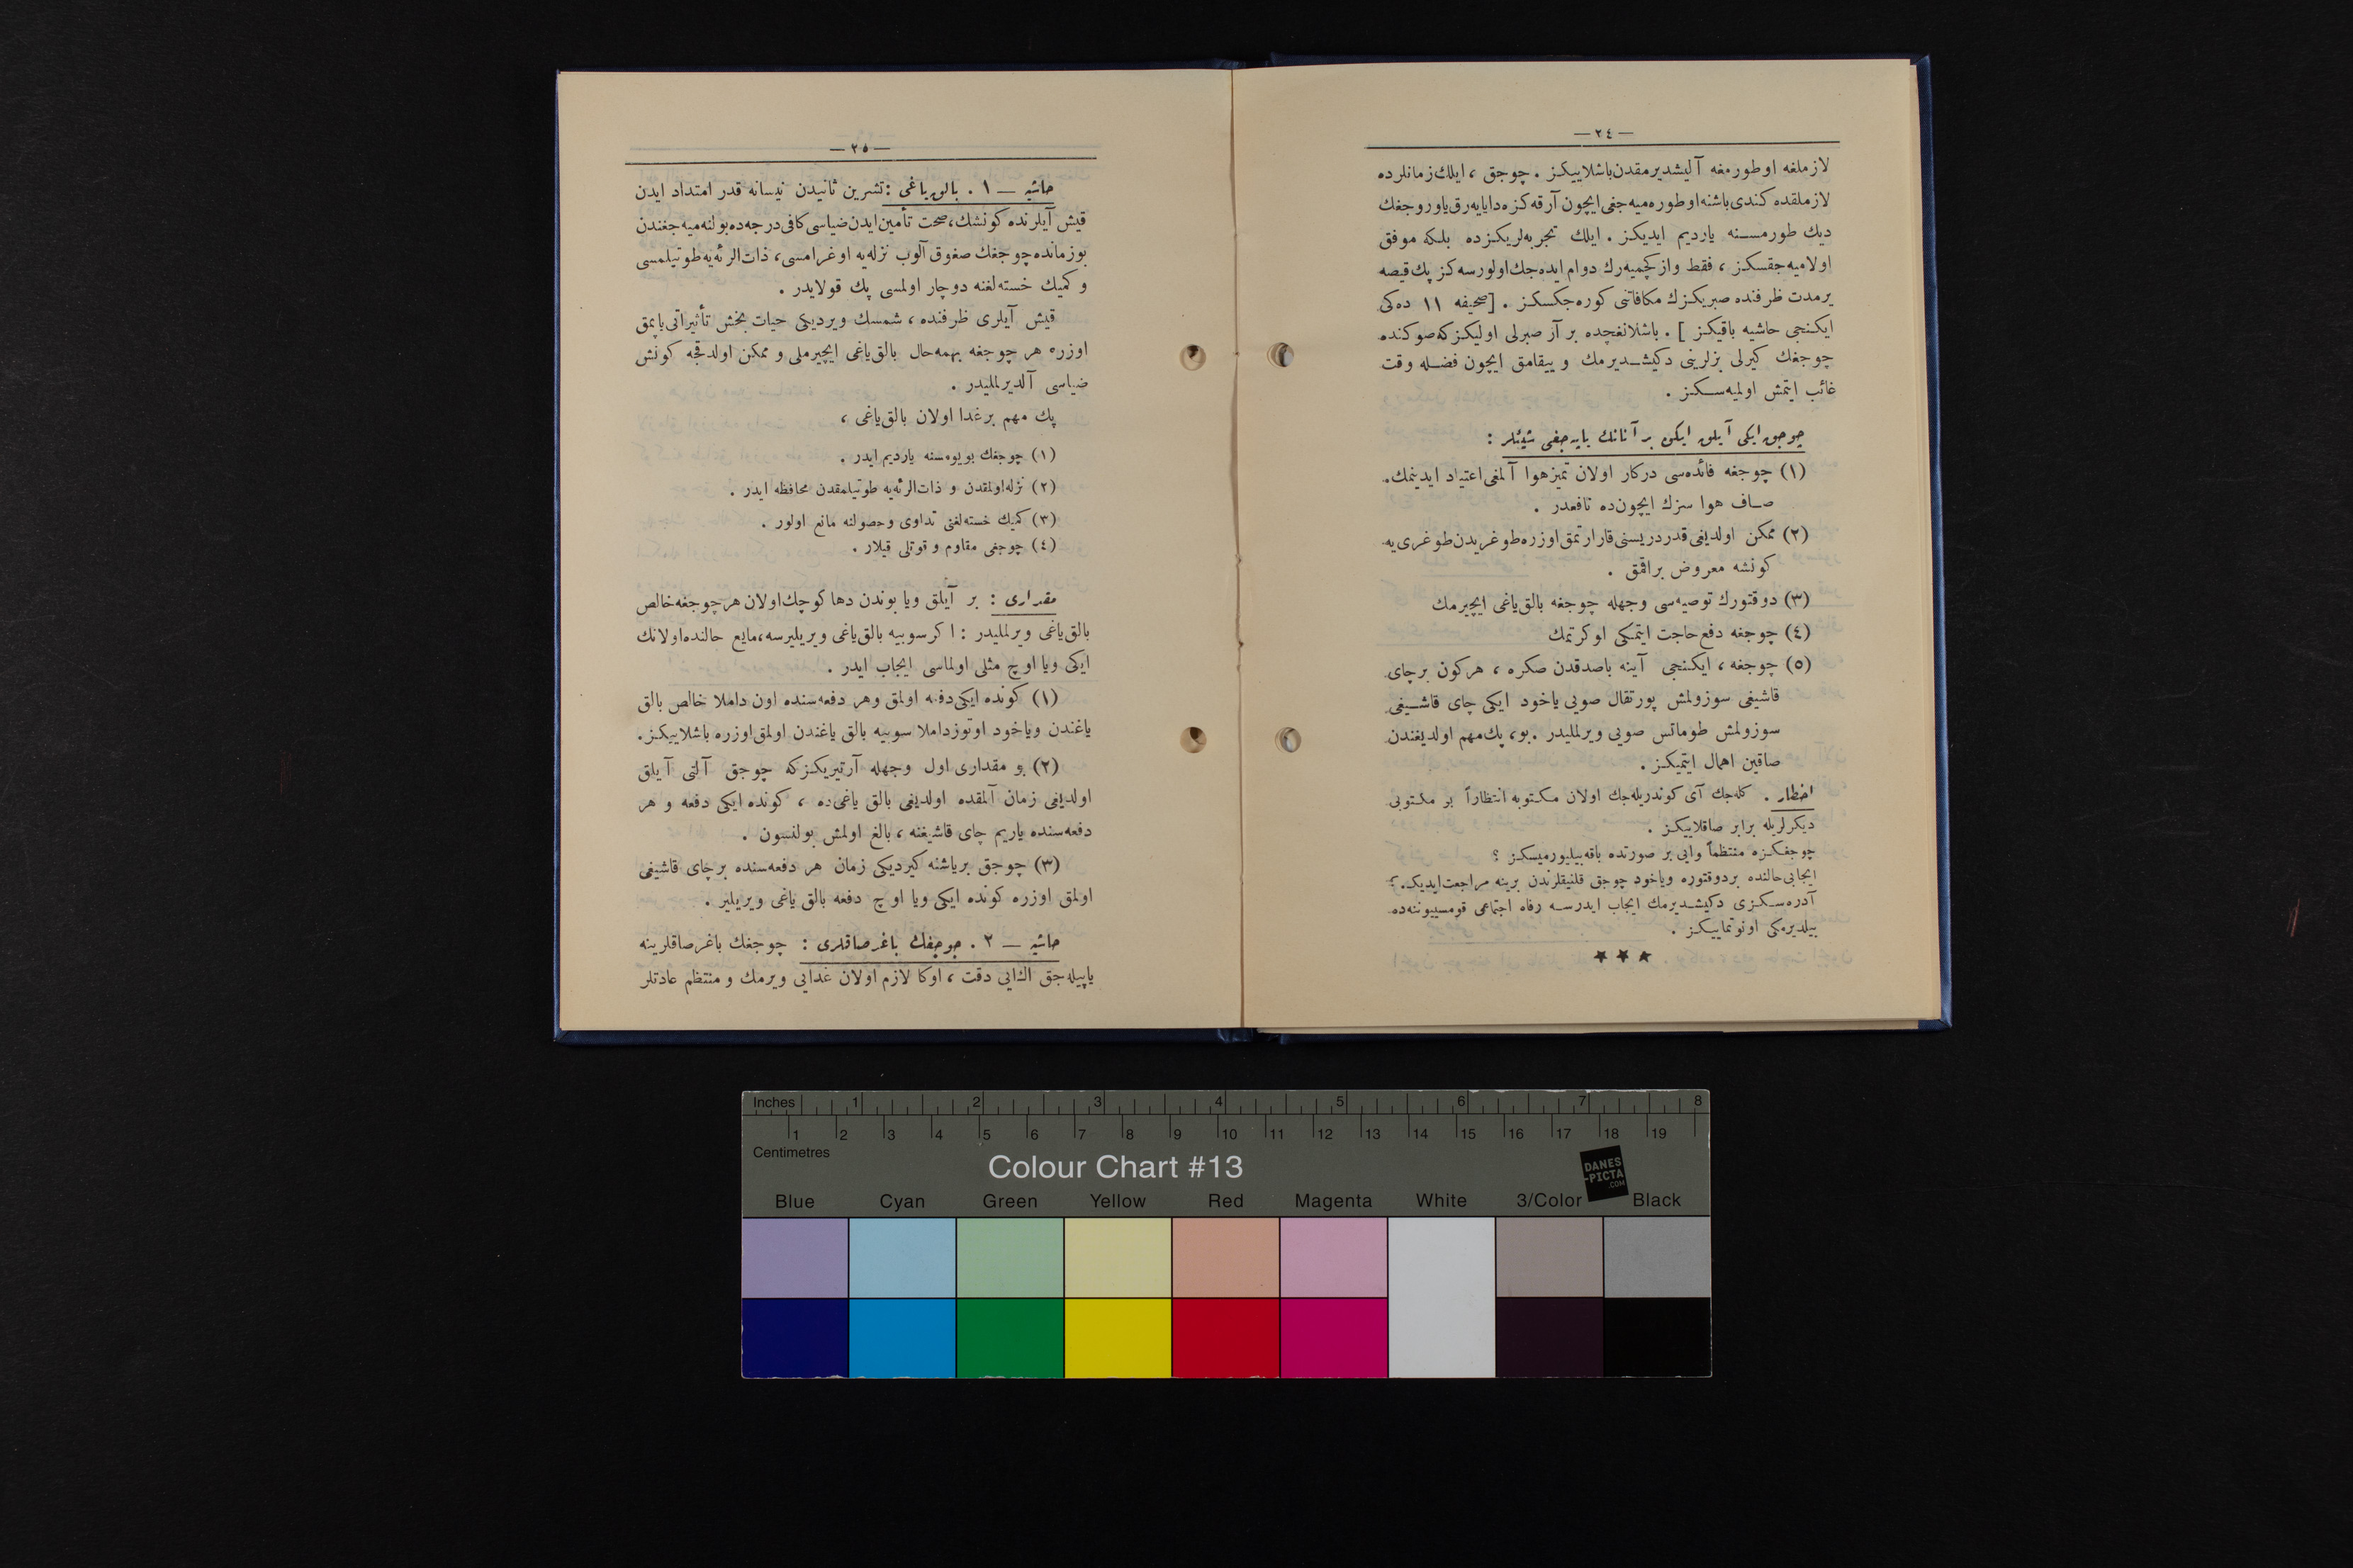 — ٢٤ —
لازملغه اوطورمغه آليشديرمقدن باشلاييكز . چوجق ، ايلك زمانلرده
لازملقده كندی باشنه اوطوره ميه جغی ايچون آرقه كزه دايايه رق ياوروجغك
ديك طورمسنه يارديم ايديكز . ايلك تجربه لريكزده بلكه موفق
اولاميه جقسكز ، فقط واز كچميه رك دوام ايده جك اولورسه كز پك قيصه
برمدت ظرفنده صبريكزك مكافاتنی كوره جكسكز . [صحيفه ١١ ده كی
ايكنجی حاشيه باقيكز ] . باشلانغچده بر آز صبرلی اوليكز كه صوكنده
چوجغك كيرلی بزلرينی دكيشديرمك و ييقامق ايچون فضله وقت
غائب ايتمش اولميه سكز .
چوجق ايكی آيلق ايكن بر آنانك ياپه جغی شيئلر :
(١) چوجغه فائده سی دركار اولان تميز هوا آلمغی اعتياد ايدينمك.
صاف هوا سزك ايچون ده نافعدر .
(٢) ممكن اولديغی قدر دريسنی قارارتمق اوزره طوغريدن طوغری يه
كونشه معروض براقمق .
(٣) دوقتورك توصيه سی وجهله چوجغه بالق ياغی ايچيرمك
(٤) چوجغه دفع حاجت ايتمكی اوكرتمك
(٥) چوجغه ، ايكنجی آينه باصدقدن صكره ، هركون بر چای
قاشيغی سوزولمش پورتقال صويی ياخود ايكی چای قاشيغی
سوزولمش طوماتس صويی ويرلمليدر . بو، پك مهم اولديغندن
صاقين اهمال ايتميكز .
اخطار . كله جك آی كوندريله جك اولان مكتوبه انتظاراً بو مكتوبی
ديكرلريله برابر صاقلاييكز .
چوجغكزه منتظماً وايی بر صورتده باقه بيليورميسكز ؟
ايجابی حالنده بردوقتوره وياخود چوجق قلنيقلرندن برينه مراجعت ايديكز.
آدره سكزی دكيشديرمك ايجاب ايدرسه رفاه اجتماعی قوميسيوننه ده
بيلديرمكی اونوتماييكز .
★ ★ ★
— ٢٥ —
حاشيه — ١ . بالق ياغی : تشرين ثانيدن نيسانه قدر امتداد ايدن
قيش آيلرنده كونشك، صحت تأمين ايدن ضياسی كافی درجه ده بولنه ميه جغندن
بوزمانده چوجغك صغوق آلوب نزله يه اوغرامسی، ذات الرئه يه طوتيلمسی
و كميك خسته لغنه دوچار اولمسی پك قولايدر .
قيش آيلری ظرفنده ، شمسك ويرديكی حيات بخش تأثيراتی ياپمق
اوزره هر چوجغه بهمه حال بالق ياغی ايچيرملی و ممكن اولدقجه كونش
ضياسی آلديرلمليدر .
پك مهم برغدا اولان بالق ياغی ،
(١) چوجغك بويومسنه يارديم ايدر .
(٢) نزله اولمقدن و ذات الرئه يه طوتيلمقدن محافظه ايدر .
(٣) كميك خسته لغنی تداوی و حصولنه مانع اولور .
(٤) چوجغی مقاوم و قوتلی قيلار .
مقداری : بر آيلق ويا بوندن دها كوچك اولان هر چوجغه خالص
بالق ياغی ويرلمليدر : اكر سوبيه بالق ياغی ويريليرسه، مايع حالنده اولانك
ايكی ويا اوچ مثلی اولماسی ايجاب ايدر .
(١) كونده ايكی دفعه اولمق وهر دفعه سنده اون داملا خالص بالق
ياغندن وياخود اوتوز داملا سوبيه بالق ياغندن اولمق اوزره باشلاييكز.
(٢) بو مقداری اول وجهله آرتيريكز كه چوجق آلتی آيلق
اولديغی زمان آلمقده اولديغی بالق ياغی ده ، كونده ايكی دفعه و هر
دفعه سنده ياريم چای قاشيغنه ، بالغ اولمش بولنسون .
(٣) چوجق برياشنه كيرديكی زمان هر دفعه سنده بر چای قاشيغی
اولمق اوزره كونده ايكی ويا اوچ دفعه بالق ياغی ويريلير .
حاشيه — ٢ . چوجغك باغرصاقلری : چوجغك باغرصاقلرينه
ياپيله جق اك ايی دقت ، اوكا لازم اولان غدايی ويرمك و منتظم عادتلر
Inches 1 2 3 4 5 6 7 8
1 2 3 4 5 6 7 8 9 10 11 12 13 14 15 16 17 18 19
Centimetres
Colour Chart #13
DANES
-PICTA
.COM
Blue Cyan Green Yellow Red Magenta White 3/Color Black